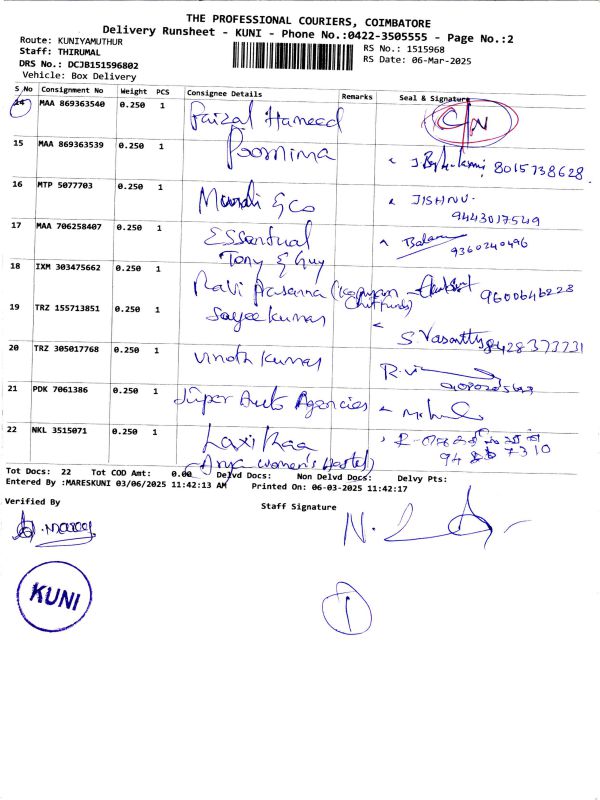 THE PROFESSIONAL COURIERS, COIMBATORE
Delivery Runsheet - KUNI - Phone No.:0422-3505555 - Page No.:2
Route: KUNIYAMUTHUR
RS No.: 1515968
Staff: THIRUMAL
RS Date: 06-Mar-2025
DRS No.: DCJB151596802
Vehicle: Box Delivery
S No Consignment No Weight PCS Consignee Details Remarks Seal & Signature
14 MAA 869363540 0.250 1 Faizal Hameed C/N
15 MAA 869363539 0.250 1 Poornima 8015738628
16 MTP 5077703 0.250 1 & Co JISHNU
9443017549
17 MAA 706258407 0.250 1 Essentual Balam
Tony & Guy 9360240496
18 IXM 303475662 0.250 1 Ravi Prasanna 9600646228
Chit funds)
19 TRZ 155713851 0.250 1 Sayee kumar S Vasanthy 8428373731
20 TRZ 305017768 0.250 1 Vinoth Kumar
21 PDK 7061386 0.250 1 Super Auto Agencies
22 NKL 3515071 0.250 1
(Arya women's Hostel)
Tot Docs: 22 Tot COD Amt: 0.00 Delvd Docs: Non Delvd Docs: Delvy Pts:
Entered By :MARESKUNI 03/06/2025 11:42:13 AM Printed On: 06-03-2025 11:42:17
Verified By
Staff Signature
KUNI
1